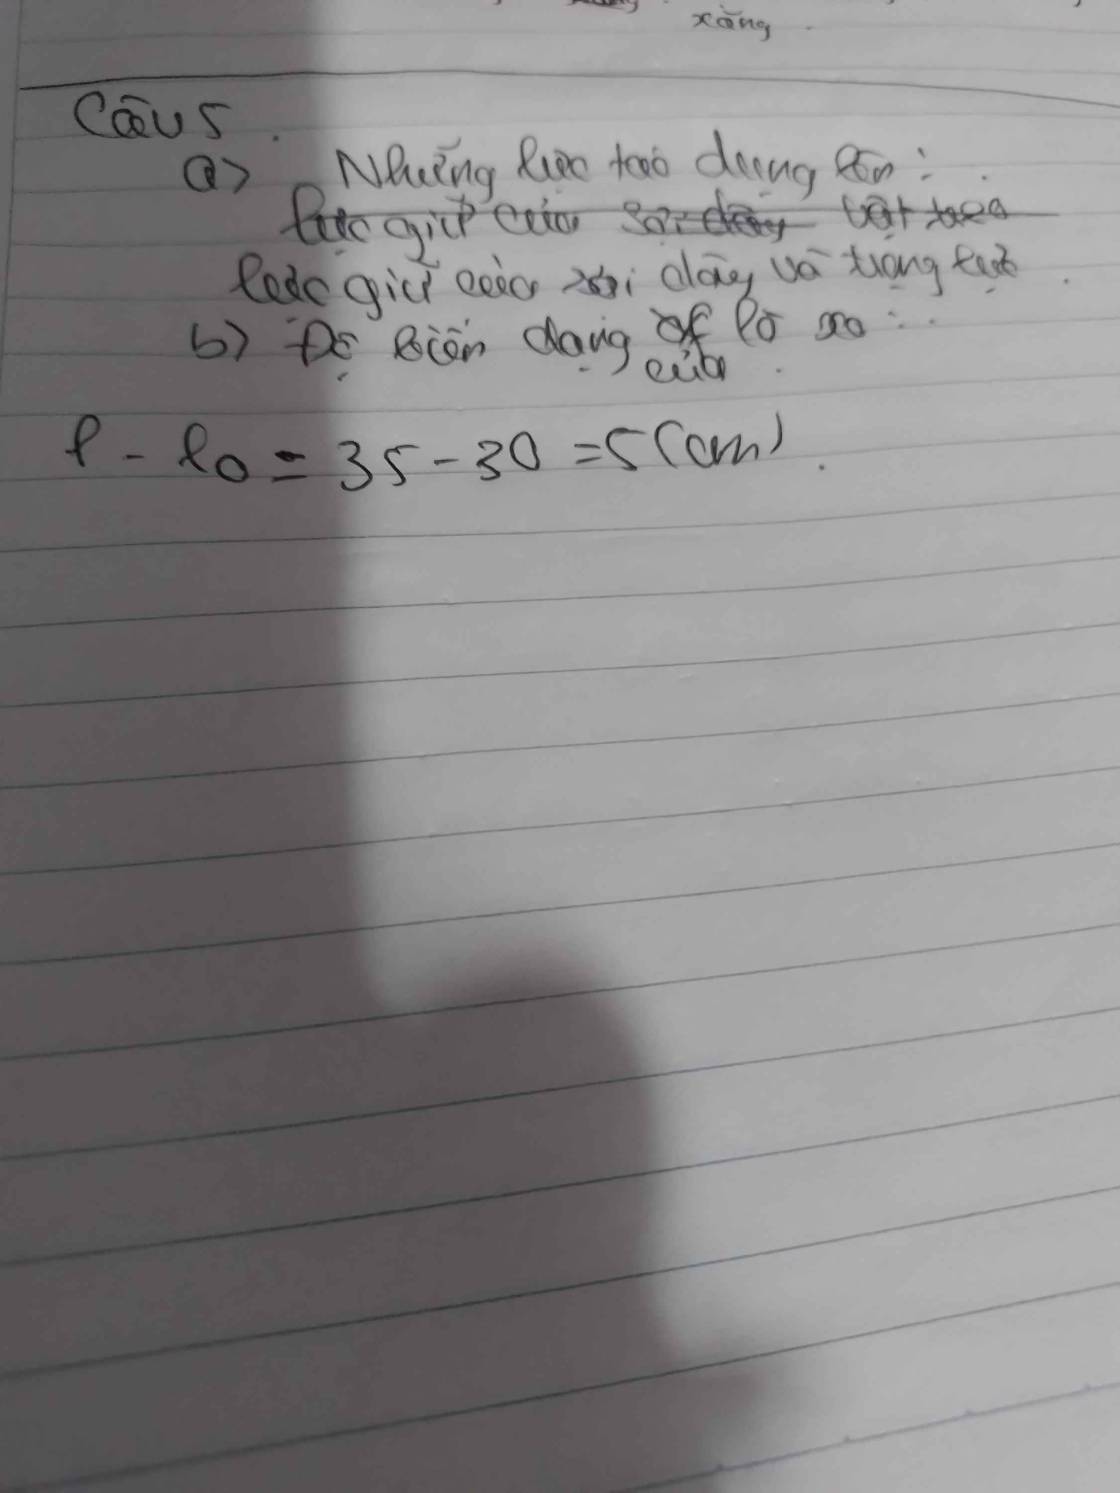 xăng
Câu 5.
a> Những lực tác dụng lên:
lực giữ của sợi dây vật treo
lực giữ của sợi dây và trọng lực.
b> Độ biến dạng of lò xo:
của
l - l0 = 35 - 30 = 5 (cm).